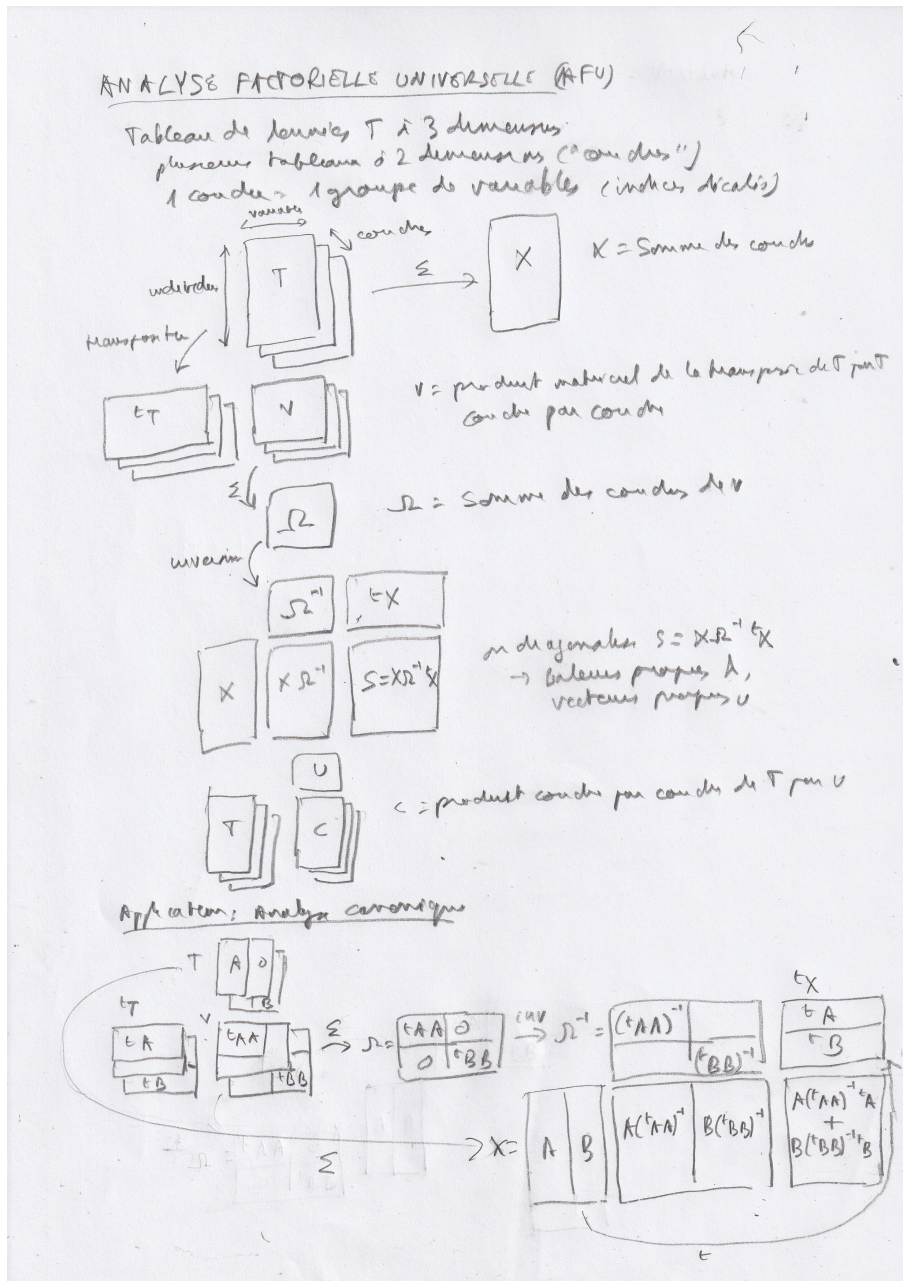 ANALYSE FACTORIELLE UNIVERSELLE (AFU)
Tableau de données T à 3 dimensions
plusieurs tableaux à 2 dimensions ("couches")
1 couche = 1 groupe de variables (indices décalés)
variables
couches
individus
T
Σ
X
X = Somme des couches
transposition
tT
V
V = produit matriciel de la transposée de T par T
couche par couche
Σ
Ω
Ω = Somme des couches de V
inversion
Ω⁻¹
tX
X
XΩ⁻¹
S=XΩ⁻¹tX
on diagonalise S = XΩ⁻¹ tX
→ valeurs propres Λ,
vecteurs propres U
U
T
C
C = produit couche par couche de T par U
Application: Analyse canonique
T
A
0
B
tT
tA
tB
V
tAA
tBB
Σ
Ω =
tAA
0
0
tBB
inv
Ω⁻¹ =
(tAA)⁻¹
(tBB)⁻¹
tX
tA
tB
Σ
X =
A
B
A(tAA)⁻¹
B(tBB)⁻¹
A(tAA)⁻¹tA
+
B(tBB)⁻¹tB
t